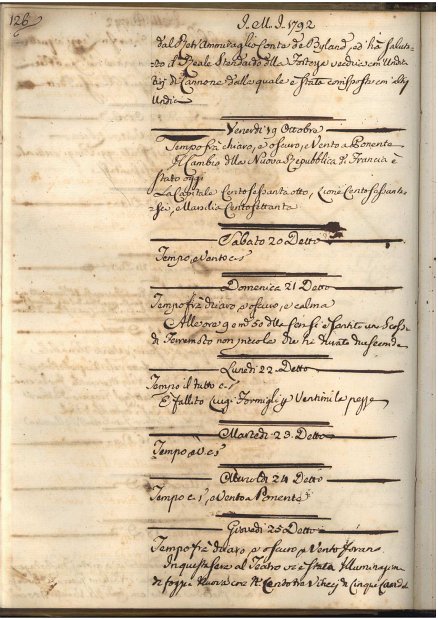 126
J. M. J. 1792
dal Retrammiraglio Conte de Byland, ed ha saluta-
to il Reale Stendardo della Fortezza verdue con Undi-
ci di Cannone dalla quale è stato corrisposto con altri
Undici
Venerdi 19 Ottobre
Tempo frà chiaro, e oscuro, e Vento a Ponente
Il Cambio della Nuova Repubblica di Francia è
stato oggi
La Capitale Cento sessanta otto, Lione Cento sessanta
sei, e Marsilia Cento settanta
Sabato 20 Detto
Tempo, e Vento c. s.
Domenica 21 Detto
Tempo frà chiaro, e oscuro, e calma
Alle ore 9 e m. 50 della sera si è sentito una Scossa
di Terremoto non piccola che hà durato due secondi
Lunedi 22 Detto
Tempo il tutto c. s.
E fallito Luigi Formigli p. Ventimila pezze
Martedi 23 Detto
Tempo, e V. c. s.
Mercoldi 24 Detto
Tempo c. s., e Vento a Ponente
Giovedi 25 Detto
Tempo frà chiaro, e oscuro, e Vento
In questa sera al Teatro vi è stata Illuminazione
di foggia Nuova con N. Cento tre di Cinque Candele